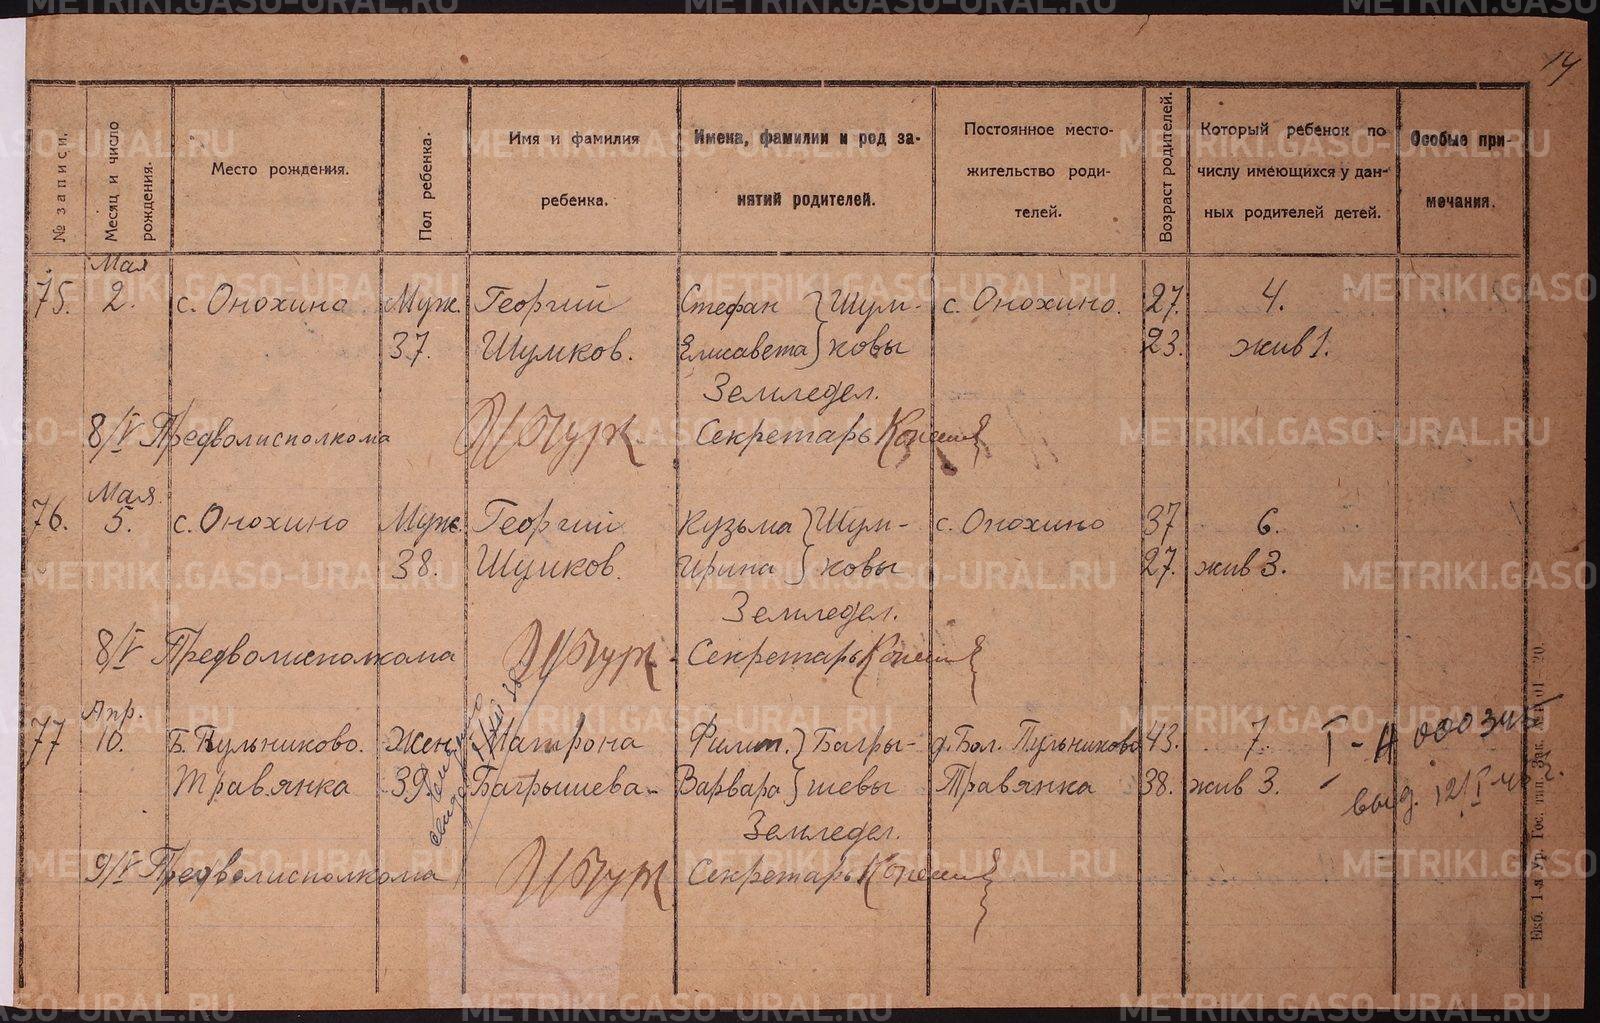 14
№ записи.
Месяц и число рождения.
Место рождения.
Пол ребенка.
Имя и фамилия
ребенка.
Имена, фамилии и род за-
нятий родителей.
Постоянное место-
жительство роди-
телей.
Возраст родителей.
Который ребенок по
числу имеющихся у дан-
ных родителей детей.
Особые при-
мечания.
Мая
75. 2. с. Онохино Муж. Георгий Стефан } Шум- с. Онохино. 27. 4.
37. Шумков. Елисавета } ковы 23. жив 1.
Земледел.
8/V Предволисполкома Секретарь
Мая.
76. 5. с. Онохино Муж. Георгий Кузьма } Шум- с. Онохино 37 6.
38. Шумков. Ирина } ковы 27. жив 3.
Земледел.
8/V Предволисполкома Секретарь
Апр.
77 10. Б. Пульниково. Жен Матрона Филип. } Багры- д. Бол. Пульниково 43. 7. I-А
Травянка 39 Багрышева Варвара } шевы Травянка 38. жив 3. выд. 12/I
Земледел.
9/V Предволисполкома Секретарь
METRIKI.GASO-URAL.RU